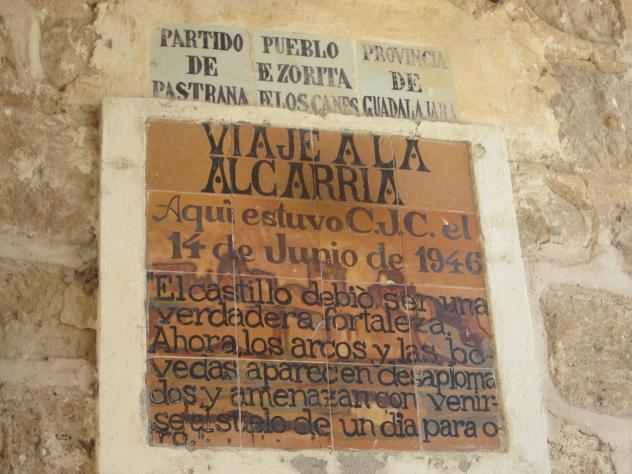 PARTIDO
DE
PASTRANA
PUEBLO
DE ZORITA
DE LOS CANES
PROVINCIA
DE
GUADALAJARA
VIAJE A LA
ALCARRIA
Aqui estuvo C.J.C. el
14 de Junio de 1946
"El castillo debiò ser una
verdadera fortaleza.
Ahora los arcos y las bo-
vedas aparecen desaploma
dos y amenazan con venir-
se al suelo de un dia para o
tro."